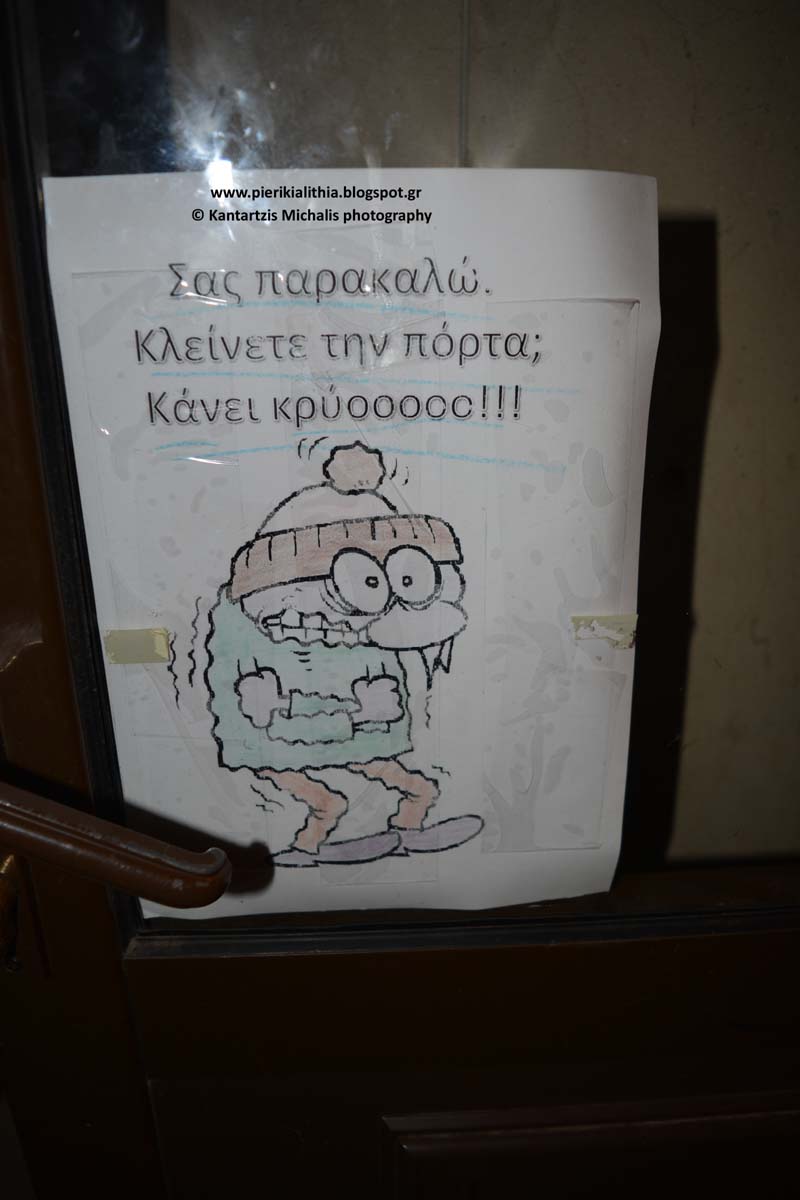 www.pierikialithia.blogspot.gr
© Kantartzis Michalis photography
Σας παρακαλώ.
Κλείνετε την πόρτα;
Κάνει κρύοοοοο!!!